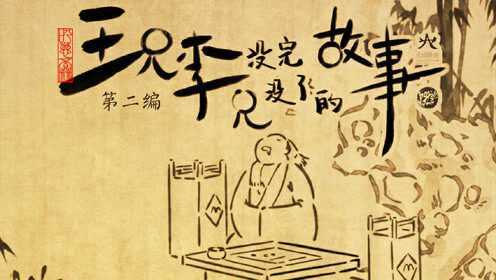 王兄李兄没完没了的故事
六
第二编